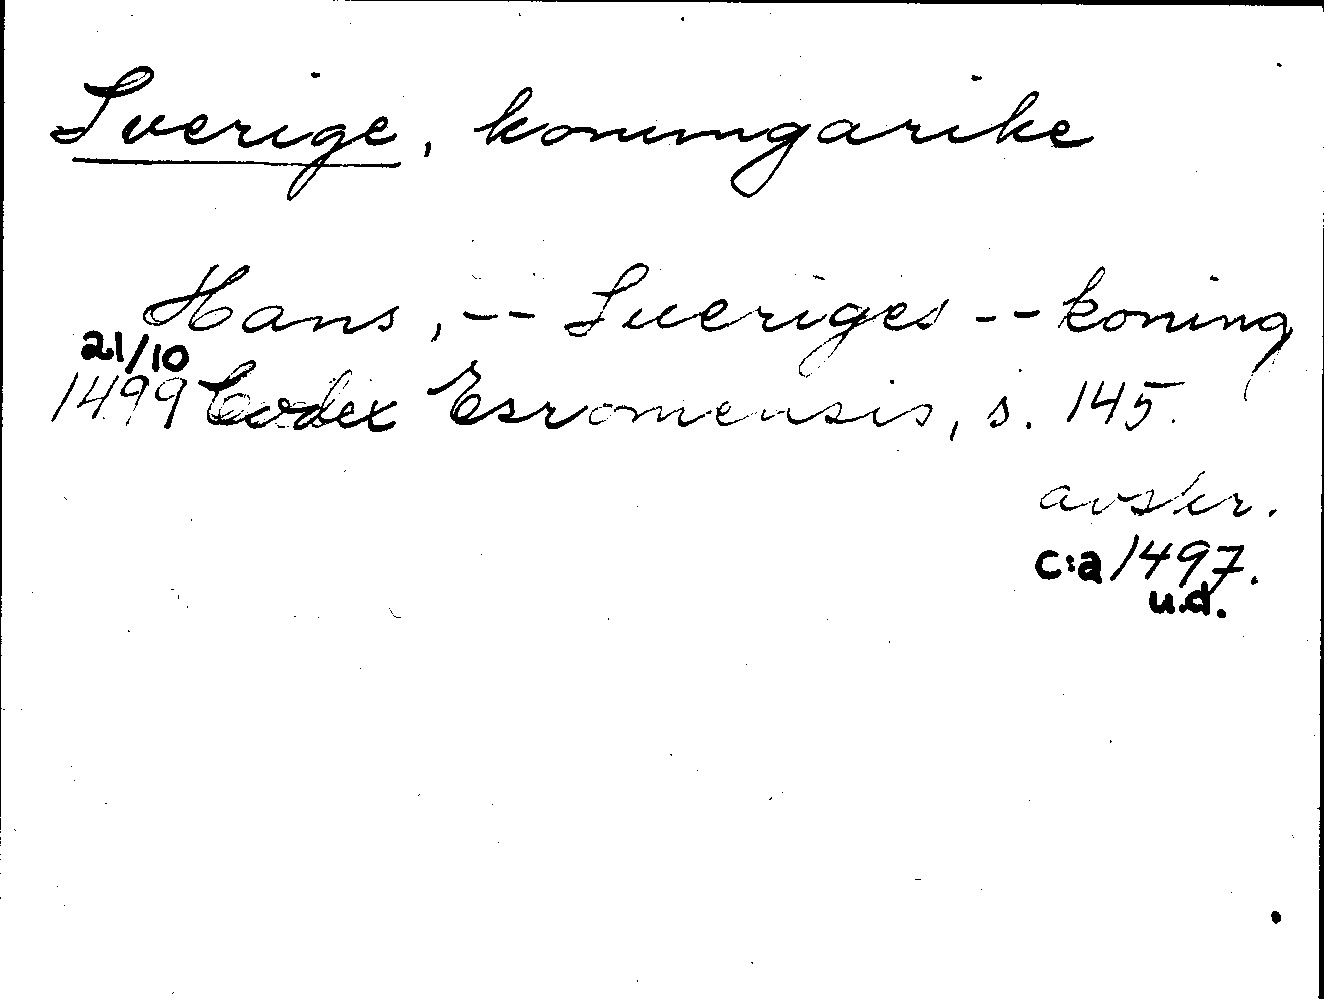 Sverige, konungarike
Hans, -- Sueriges -- koning
21/10
1499 Codex Esromensis, s. 145.
avskr.
c:a 1497.
u.d.